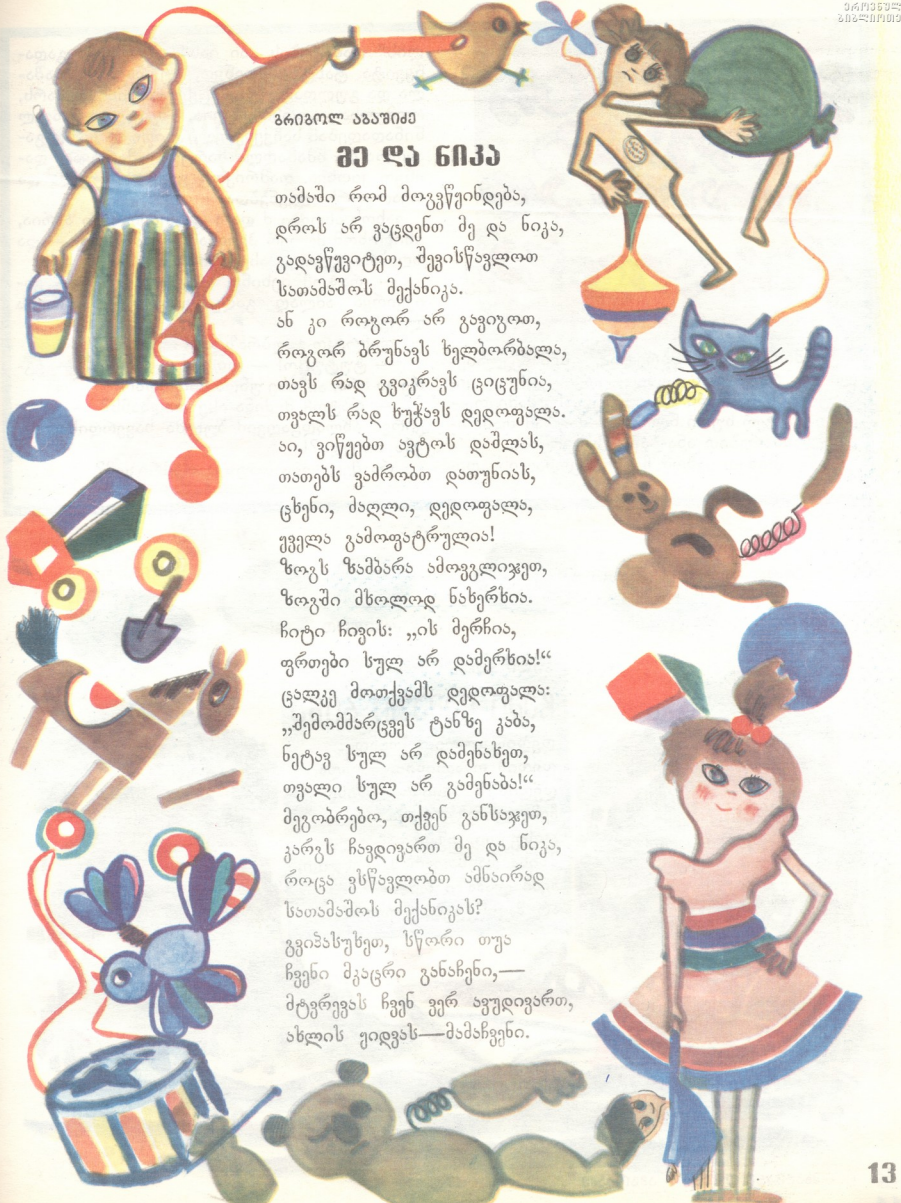 ეროვნული
ბიბლიოთეკა
გრიგოლ აბაშიძე
მე და ნიკა
თამაში რომ მოგვწყინდება,
დროს არ ვაცდენთ მე და ნიკა,
გადავწყვიტეთ, შევისწავლოთ
სათამაშოს მექანიკა.
ან კი როგორ არ გავიგოთ,
როგორ ბრუნავს ხელბორბალა,
თავს რად გვიკრავს ციცუნია,
თვალს რად ხუჭავს დედოფალა.
აი, ვიწყებთ ავტოს დაშლას,
თათებს ვაძრობთ დათუნიას,
ცხენი, ძაღლი, დედოფალა,
ყველა გამოფატრულია!
ზოგს ზამბარა ამოვგლიჯეთ,
ზოგში მხოლოდ ნახერხია.
ჩიტი ჩივის: „ის მერჩია,
ფრთები სულ არ დამერხია!“
ცალკე მოთქვამს დედოფალა:
„შემომმარცვეს ტანზე კაბა,
ნეტავ სულ არ დამენახეთ,
თვალი სულ არ გამენაბა!“
მეგობრებო, თქვენ განსაჯეთ,
კარგს ჩავდივართ მე და ნიკა,
როცა ვსწავლობთ ამნაირად
სათამაშოს მექანიკას?
გვიპასუხეთ, სწორი თუა
ჩვენი მკაცრი განაჩენი,—
მტვრევას ჩვენ ვერ ავუდივართ,
ახლის ყიდვას—მამაჩვენი.
13